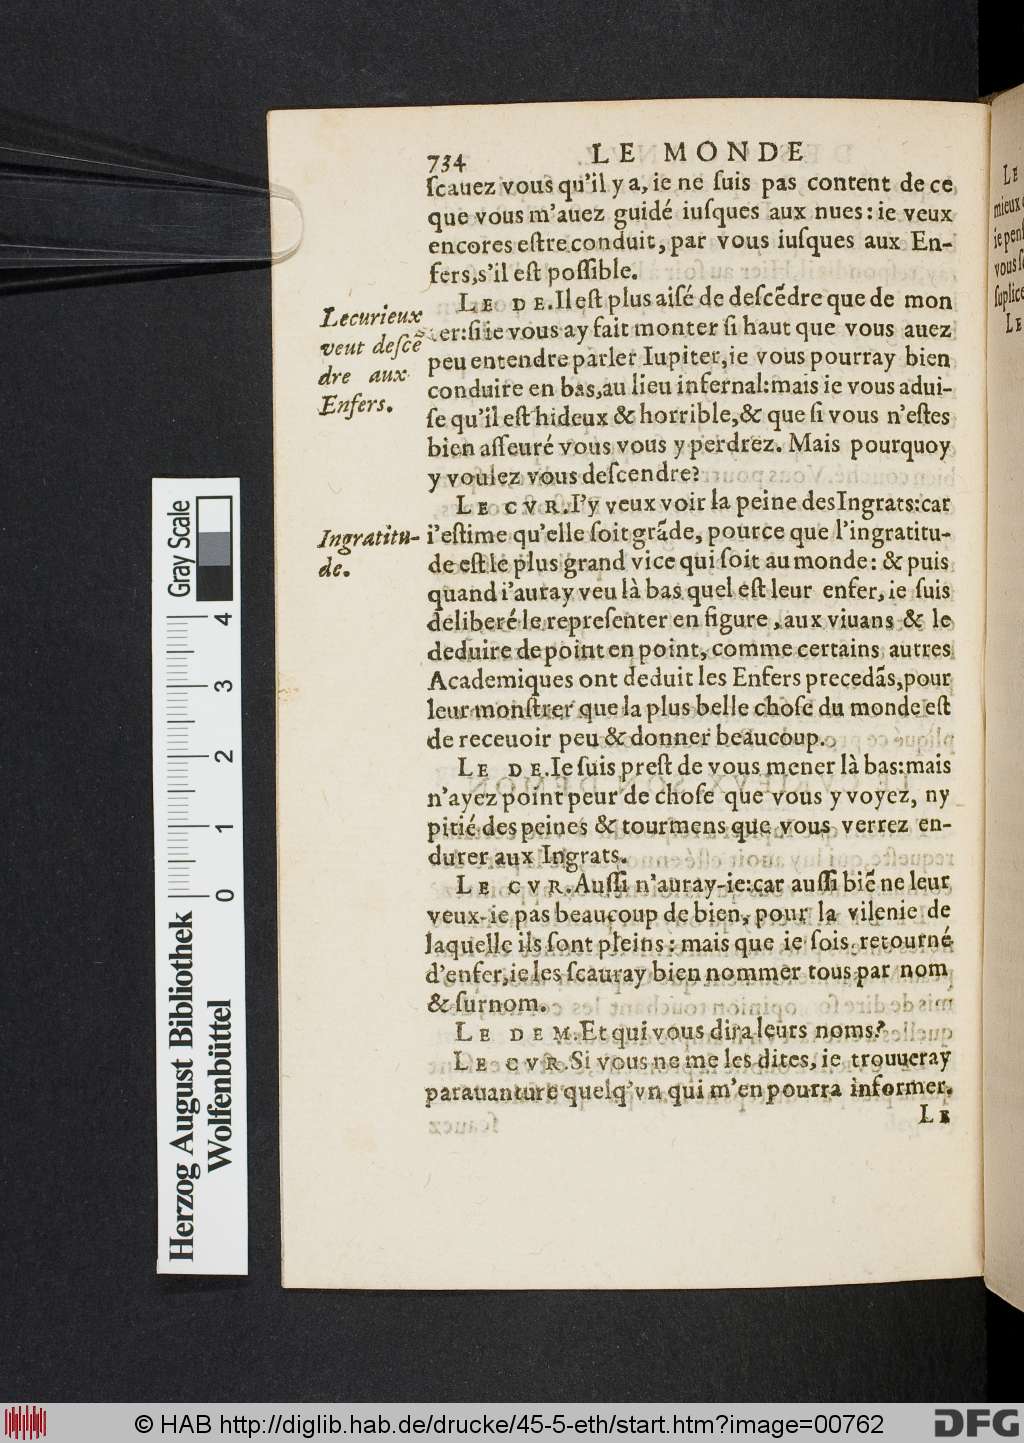 734 LE MONDE
ſcauez vous qu'il y a, ie ne ſuis pas content de ce
que vous m'auez guidé iuſques aux nues: ie veux
encores eſtre conduit, par vous iuſques aux En-
fers, s'il eſt poſſible.
LE DE. Il eſt plus aiſé de deſcẽdre que de mon
er: ſi ie vous ay fait monter ſi haut que vous auez
peu entendre parler Iupiter, ie vous pourray bien
conduire en bas, au lieu infernal: mais ie vous adui-
ſe qu'il eſt hideux & horrible, & que ſi vous n'eſtes
bien aſſeuré vous vous y perdrez. Mais pourquoy
y voulez vous deſcendre?
Le curieux
veut deſcẽ
dre aux
Enfers.
LE CVR. I'y veux voir la peine des Ingrats: car
i'eſtime qu'elle ſoit grãde, pource que l'ingratitu-
de eſt le plus grand vice qui ſoit au monde: & puis
quand i'auray veu là bas quel eſt leur enfer, ie ſuis
deliberé le repreſenter en figure, aux viuans & le
deduire de point en point, comme certains autres
Academiques ont deduit les Enfers precedãs, pour
leur monſtrer que la plus belle choſe du monde eſt
de receuoir peu & donner beaucoup.
Ingratitu-
de.
LE DE. Ie ſuis preſt de vous mener là bas: mais
n'ayez point peur de choſe que vous y voyez, ny
pitié des peines & tourmens que vous verrez en-
durer aux Ingrats.
LE CVR. Auſſi n'auray-ie: car auſſi biẽ ne leur
veux-ie pas beaucoup de bien, pour la vilenie de
laquelle ils ſont pleins: mais que ie ſois retourné
d'enfer, ie les ſcauray bien nommer tous par nom
& ſurnom.
LE DEM. Et qui vous dira leurs noms?
LE CVR. Si vous ne me les dites, ie trouueray
parauanture quelq'vn qui m'en pourra informer.
LE
LE
mieux
ie penſ
vous ſ
ſuplice
LE
Gray Scale
4
3
2
1
0
Herzog August Bibliothek
Wolfenbüttel
© HAB http://diglib.hab.de/drucke/45-5-eth/start.htm?image=00762
DFG